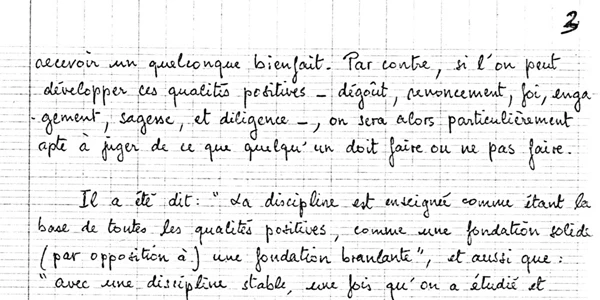 3
recevoir un quelconque bienfait. Par contre, si l'on peut
développer ces qualités positives _ dégoût, renoncement, foi, enga
-gement, sagesse, et diligence _, on sera alors particulièrement
apte à juger de ce que quelqu'un doit faire ou ne pas faire.
Il a été dit: "La discipline est enseignée comme étant la
base de toutes les qualités positives, comme une fondation solide
(par opposition à) une fondation branlante", et aussi que :
"avec une discipline stable, une fois qu'on a étudié et